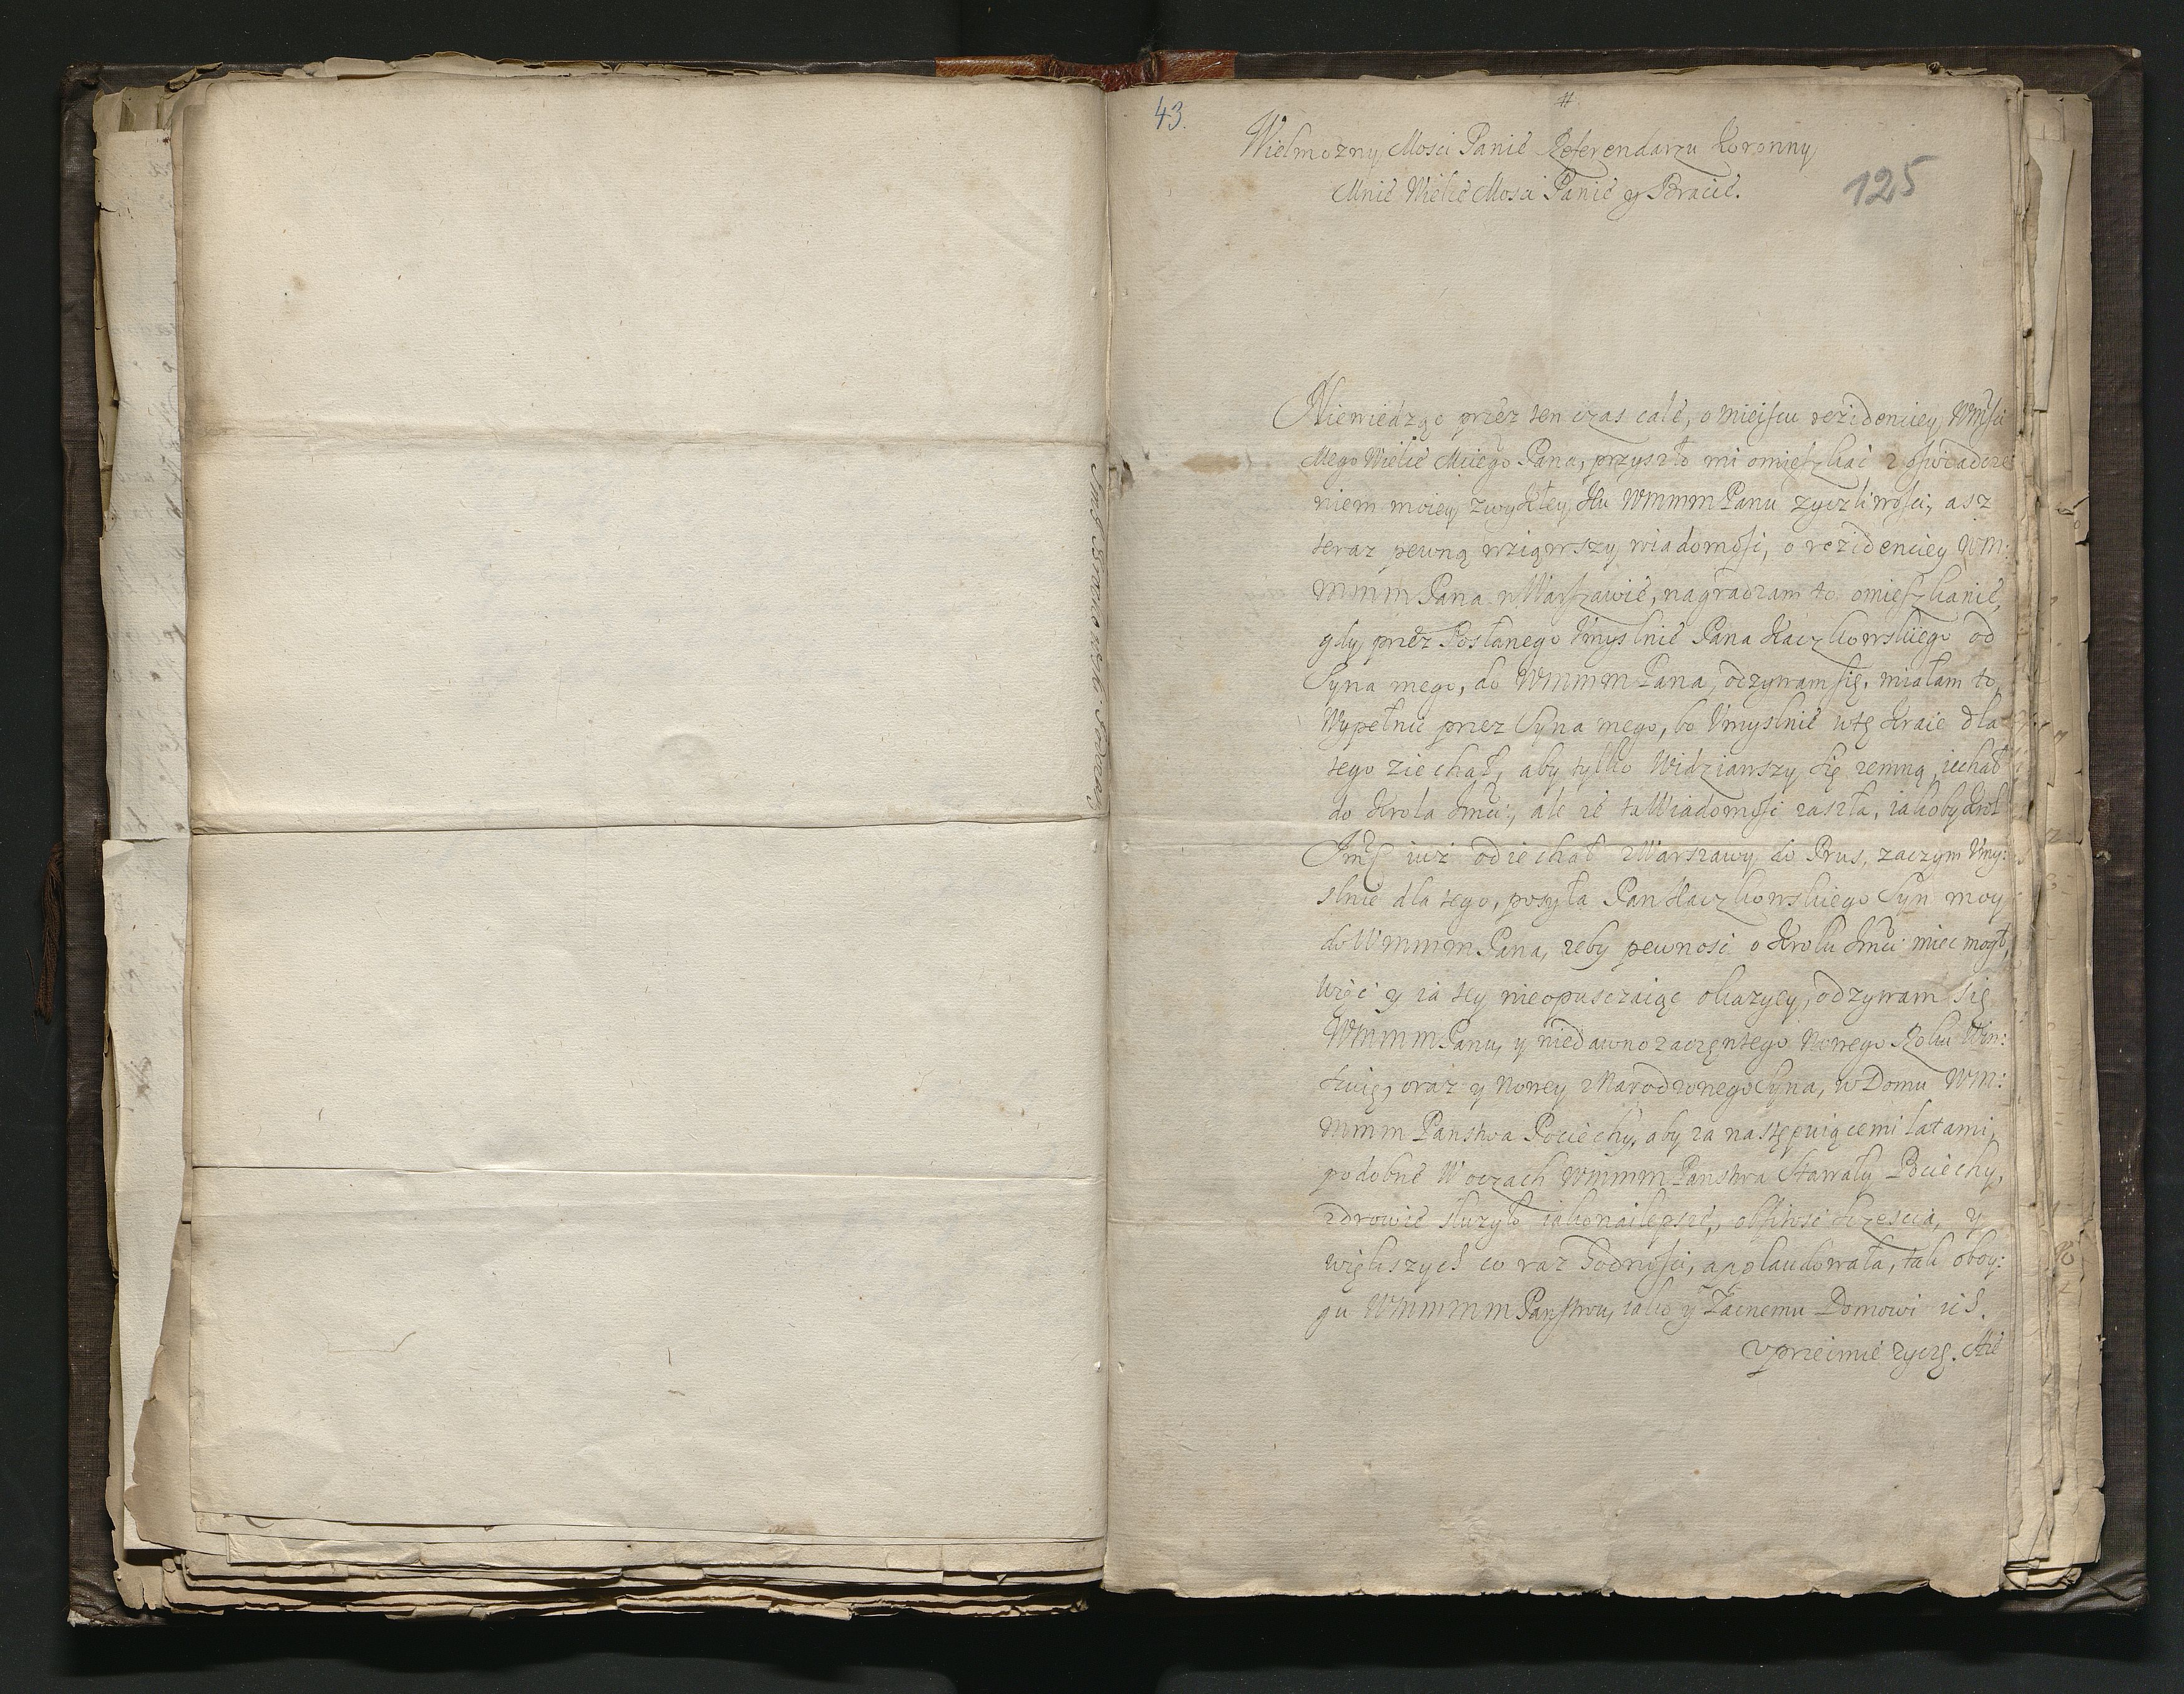 43.
#
Wielmozny Mosci Panie Referendarzu Koronny
125
Mnie Wielce Mosci Panie y Bracie.
Niewiedząc przez ten czas cale, o mieiscu rezidenciey
Mego Wielce Mciego Pana, przyszło mi omieszkac z oswiadcze
niem moiey zwykłey ku WMMM Panu zyczliwosci, asz
teraz pewną wziąwszy wiadomosc, o rezidenciey WM:
MMM Pana w Warszawie, nagradzam to omieszkanie,
gdy przez Posłanego Vmyslnie Pana Kaczkowskiego od
Syna mego, do WMMM Pana, odzywam się, miałam to,
Wypełnic przez Syna mego, bo Vmyslnie w te Kraie dla
tego ziechał, aby tylko Widziawszy się zemną, iechał
do Krola Jmci, ale ze ta Wiadomosc zaszła, iakoby Krol
Jmc iuz odiechał z Warszawy do Prus, zaczym Vmy:
slnie dla tego, posyła Pan Kaczkowskiego Syn moy
do WMMM Pana, zeby pewnosc o Krolu Jmci miec mogł,
Więc y ia tey nieopuszczaiąc okazyey, odzywam się
WMMM Panu, y niedawno zaczentego Nowego Roku Win:
szuię, oraz y Nowey z Narodzonego Syna, w Domu WM:
MMM Panstwa Pociechy, aby za następuiącemi latami,
podobne W oczach WMMM Panstwa stawały Pociechy,
zdrowie słuzyło iakonailepsze, obfitosc szczescia, y
większych co raz Godnosci, applaudowała, tak oboy:
gu WMMMM Panstwu, iako y Zacnemu Domowi ich.
vprzeimie zyczę. Ale